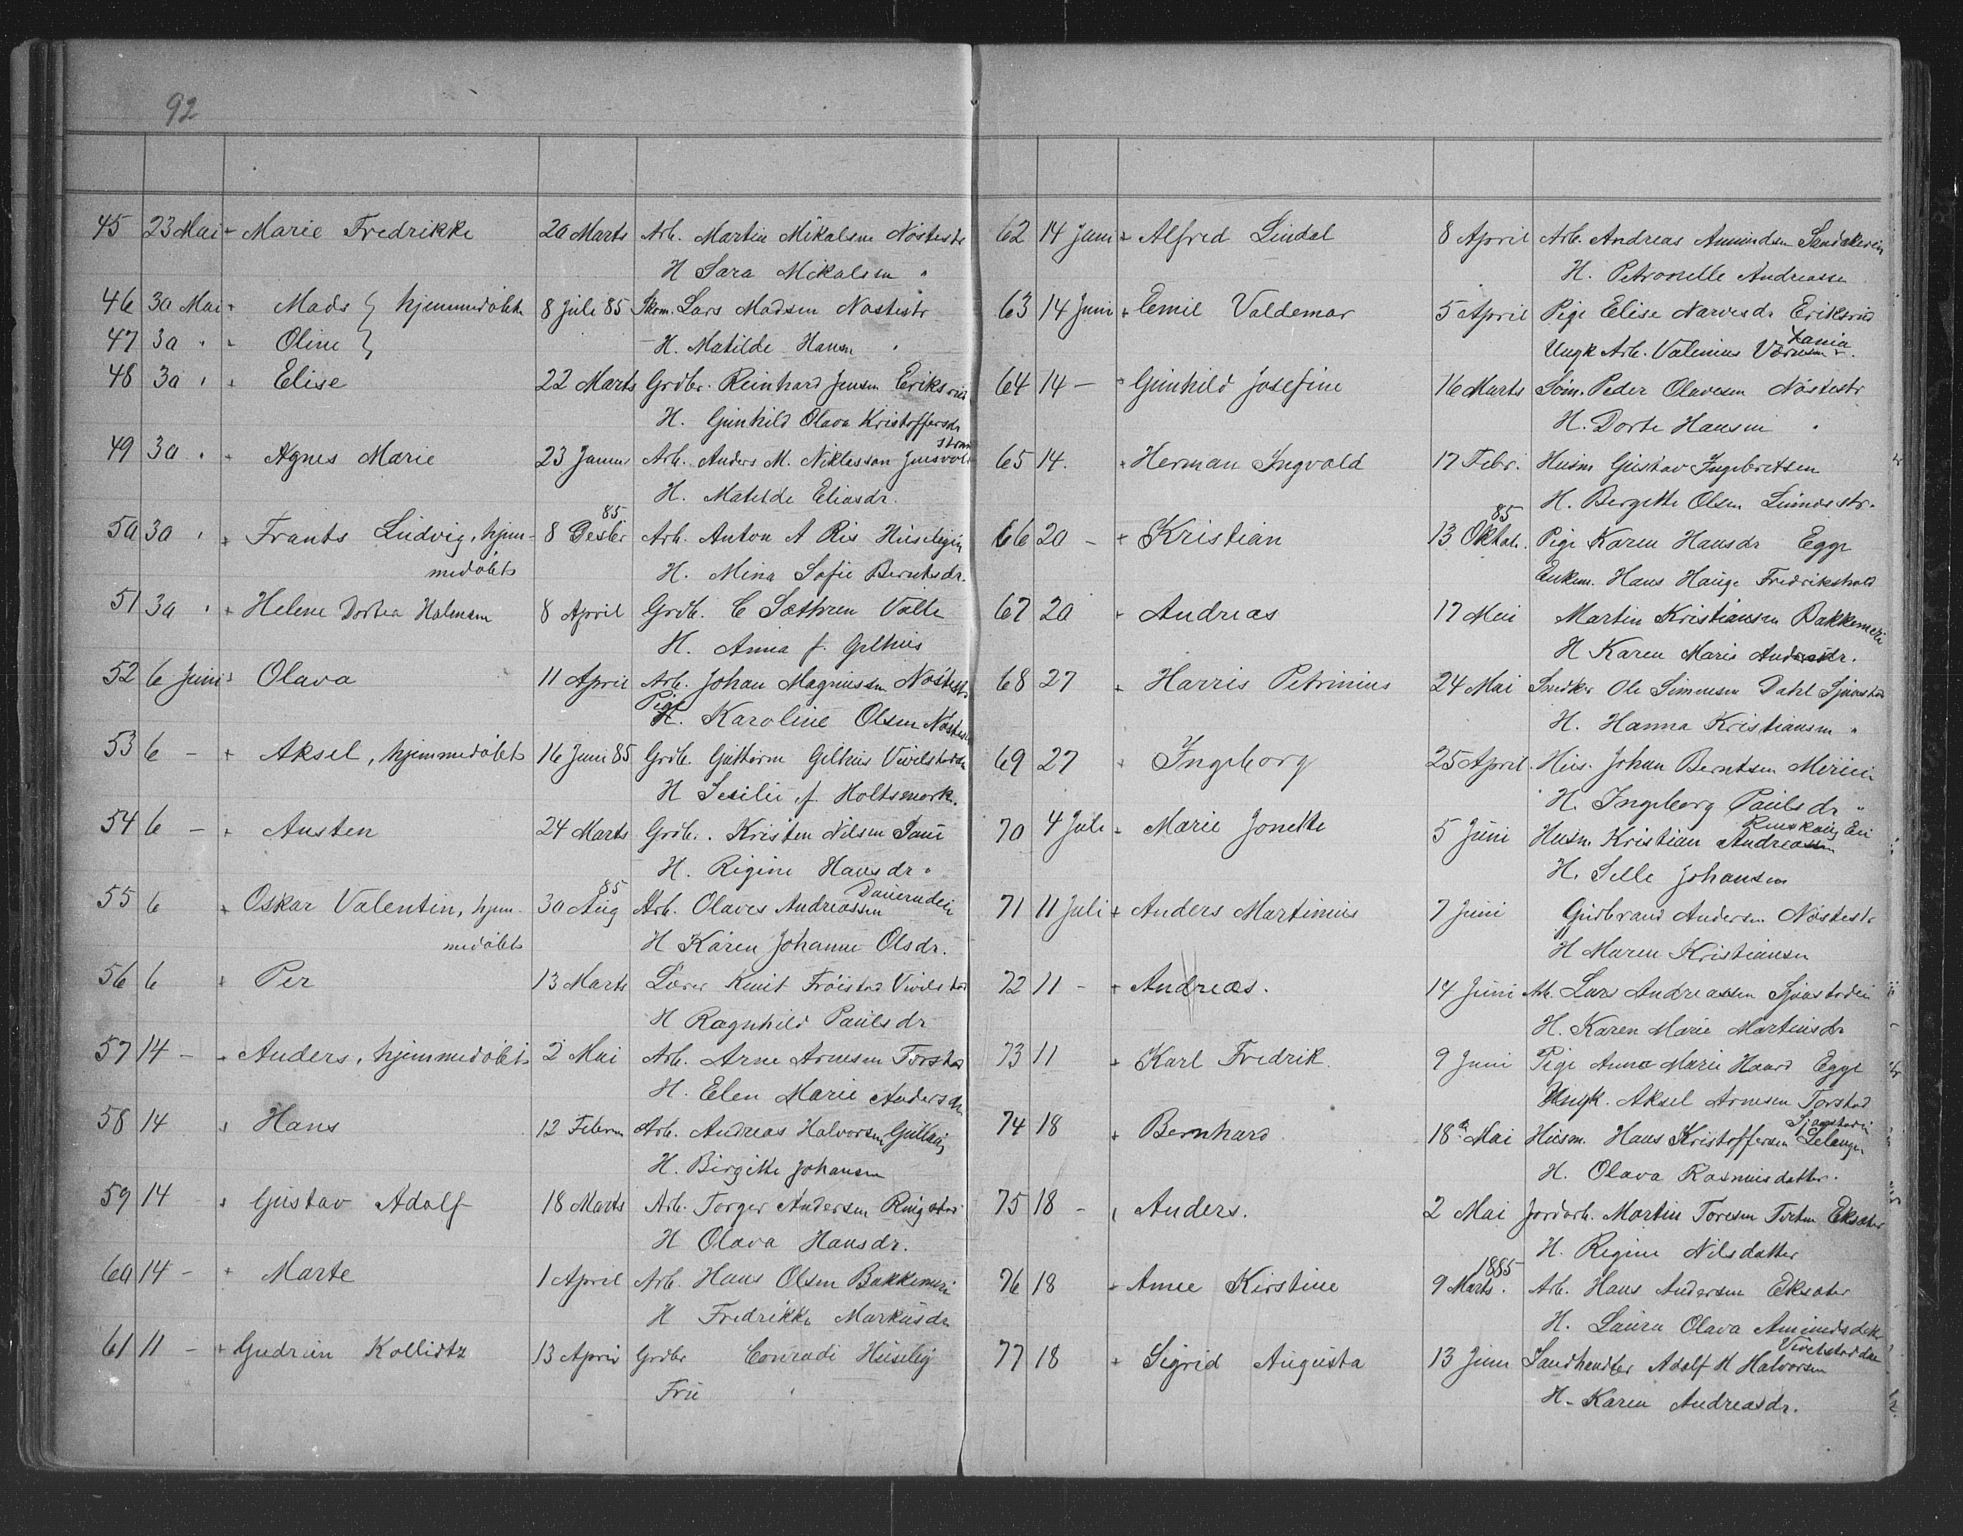 92
45 23 Mai + Marie Fredrikke 20 Marts Arb. Martin Mikalsen Nøstestr
H Sara Mikalsen "
46 30 Mai + Mads } hjemmedøbte 8 Juli 85 Skom. Lars Madsen Nøstestr
47 30 " " Oline } H. Matilde Hansen "
48 30 " + Elise 22 Marts Grdbr. Reinhard Jensen Eriksrud
H. Gunhild Olava Kristoffersdr
49 30 " + Agnes Marie 23 Januar Arb. Anders M. Niklasson
H. Matilde Eliasdr.
85
50 30 " + Frants Ludvig, hjem- 8 Desbr Arb. Anton A Ris Huseby
medøbt H. Mina Sofie Berntsdr.
51 30 " + Helene Dortea Halensen 8 April Grdb. C Sæthren Valle
H. Anna f. Gilhus
52 6 Juni + Olava 11 April Arb. Johan Magnussen Nøstestr
Pige H. Karoline Olsen Nøstestr
53 6 - + Aksel, hjemmedøbt 16 Juni 85 Grdb. Guttorm Gilhus Vivelstad
H Sesilie f. Holtsmark.
54 6 - + Austen 24 Marts Grdb. Kristen Nilsen
H. Regine Hansdr "
85
55 6 + Oskar Valentin, hjem- 30 Aug Arb. Olaves Andreassen
medøbt H Karen Johanne Olsdr.
56 6 + Per 13 Marts Lærer Knut Frøistad Vivelstad
H Ragnhild Paulsdr
57 14 - + Anders, hjemmedøbt 2 Mai Arb. Arne Arnesen Torstad
H. Elen Marie Andersdr
58 14 + Hans 12 Februar Arb. Andreas Halvorsen Gullaug
H. Birgitte Johansen
59 14 - " Gustav Adolf 18 Marts Arb. Torger Andersen Ringstad
H Olava Hansdr.
60 14 - + Marte 1 April Arb. Hans Olsen Bakkemeri
H Fredrikke Markusdr
61 11 - + Gudrun Kollidtz 13 April Grdbr Conradi Huseby
Fru "
62 14 Juni + Alfred Lindal 8 April Arb. Andreas Amundsen Sandakerein
H. Petronelle Andreasse
63 14 Juni + Emil Valdemar 5 April Pige Elise Narvesdr Eriksrud
Ungk Arb. Valenius
64 14 - + Gunhild Josefine 16 Marts Søm. Peder Olavesen Nøstestr
H. Dorte Hansen "
65 14. + Herman Ingvald 17 Febr. Husm Gustav Ingebretsen
H. Bergitte Olsen
85
66 20 - + Kristian 13 Oktob. Pige Karen Hansdr Egge
Enkem. Hans Hauge Fredrikshald
67 20 + Andreas 17 Mai Martin Kristiansen Bakkemeri
H Karen Marie Andersdr.
68 27 + Harris Petrinius 24 Mai Snedker Ole Simensen Dahl Sjaastad
H. Hanna Kristiansen "
69 27 + Ingeborg 25 April. Hus. Johan Berntsen
H. Ingeborg Paulsdr "
70 4 Juli + Marie Jonette 5 Juni Husm. Kristian Andreassen
H. Selle Johansen
71 11 Juli + Anders Martinius 7 Juni Gudbrand Andersen Nøstestr
H Maren Kristiansen
72 11 - + Andreas. 14 Juni Arb. Lars Andreassen Sjaastadein
H. Karen Marie Martinsdr
73 11 + Karl Fredrik. 9 Juni Pige Anne Marie Haard Egge
Ungk. Aksel Arnesen Torstad
74 18 + Bernhard 18 Mai Husm. Hans Kristoffersen
H. Olava Rasmusdatter.
75 18 - + Anders. 2 Mai Jordarb. Martin Toresen Eksæter
H. Regine Nilsdatter
1885
76 18 + Anne Kirstine 9 Marts. Arb. Hans Andersen Eksæter
H. Laura Olava Amundsdatter
77 18 + Sigrid Augusta 13 Juni Landhandler Adolf H Halvorsen
H. Karen Andreasdr.